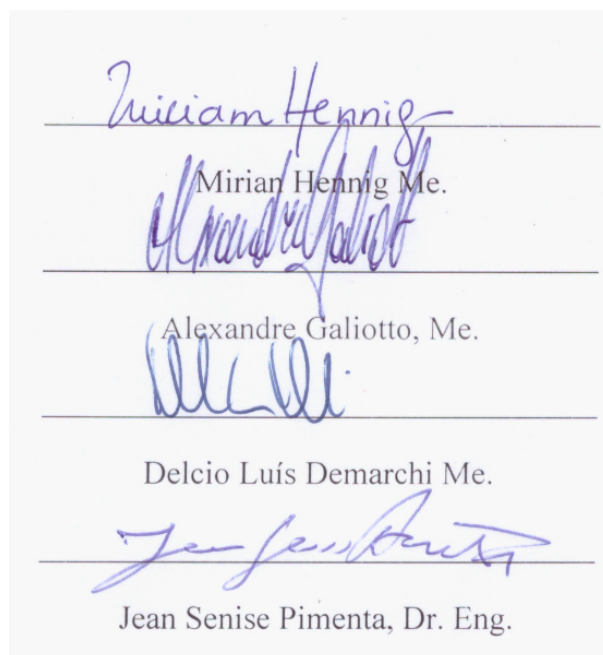 Miriam Hennig
Mirian Hennig Me.
Alexandre Galiotto
Alexandre Galiotto, Me.
Delcio Luís Demarchi Me.
Jean Senise Pimenta, Dr. Eng.